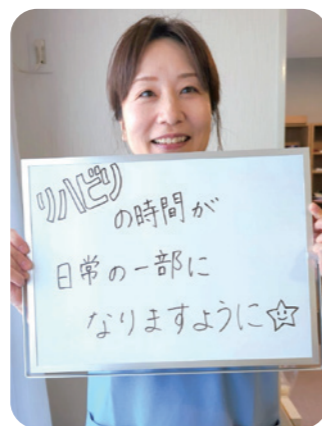 リハビリの時間が
日常の一部に
なりますように